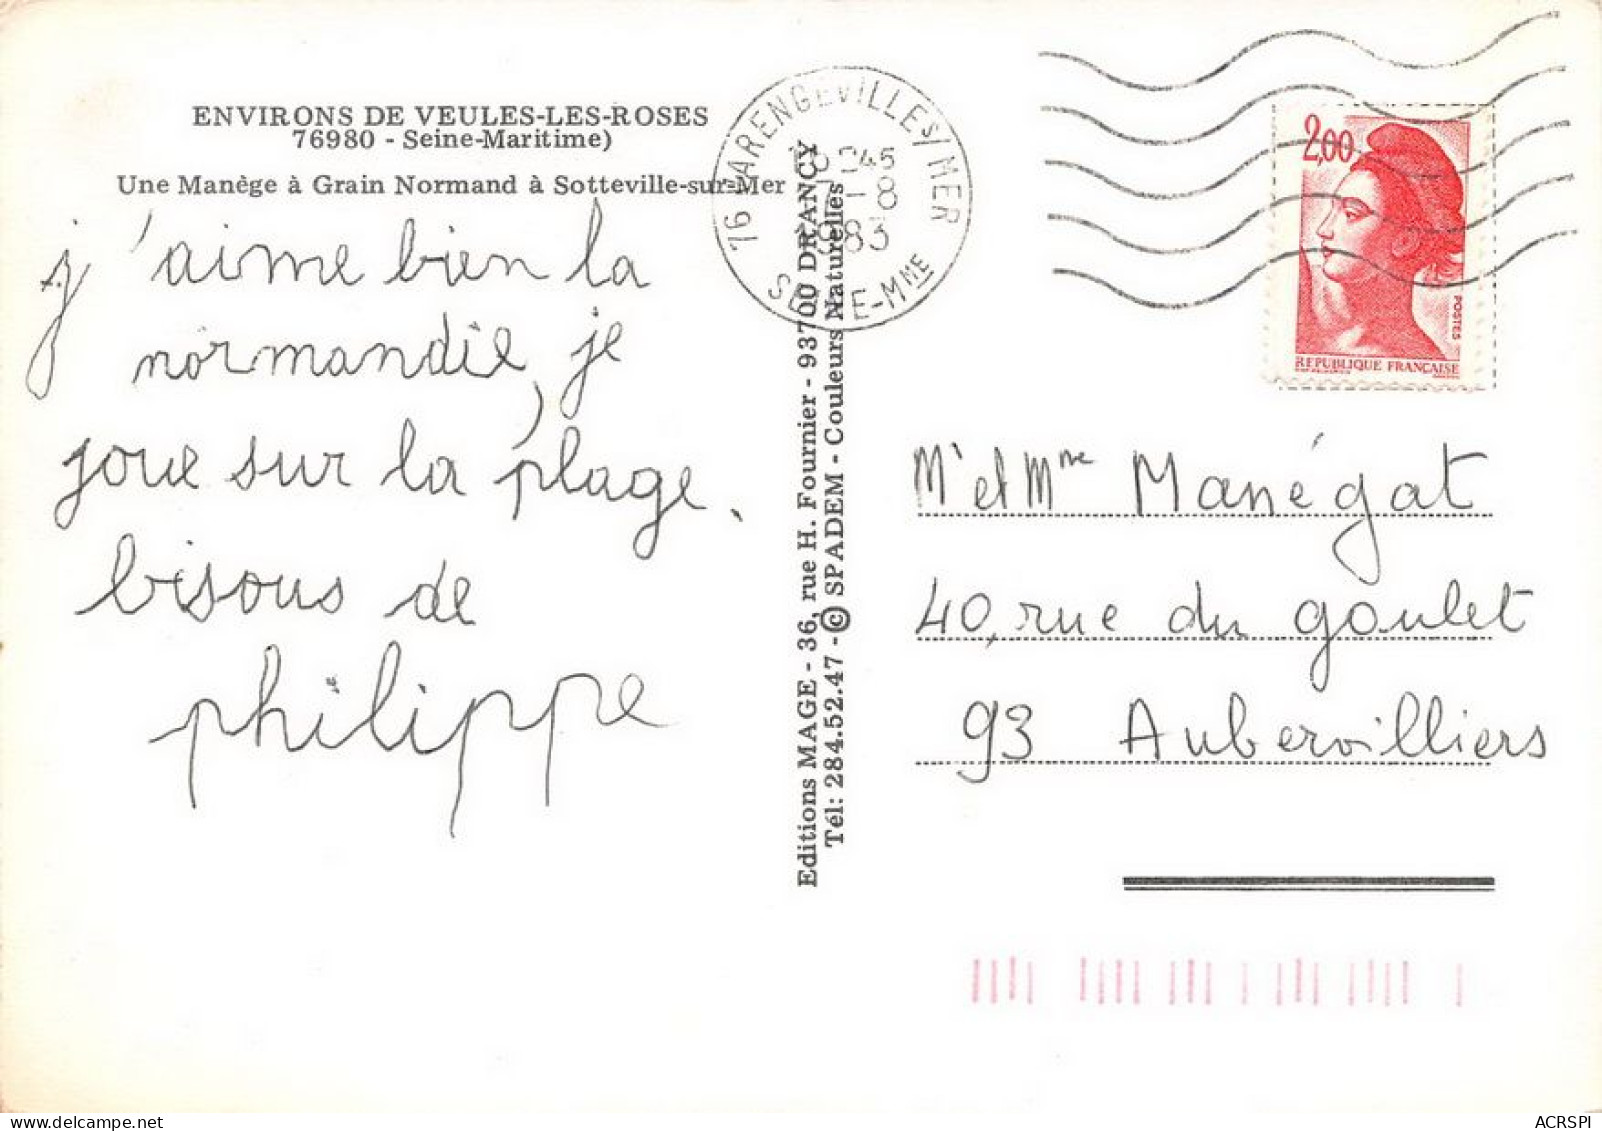 ENVIRONS DE VEULES-LES-ROSES
76980 - Seine-Maritime)
Une Manège à Grain Normand à Sotteville-sur-Mer
j'aime bien la
normandie, je
joue sur la plage.
bisous de
philippe
Editions MAGE - 36, rue H. Fournier - 93700 DRANCY
Tél: 284.52.47 - © SPADEM - Couleurs Naturelles
76 VARENGEVILLE S/MER
45
-8
1983
SEINE-MME
2,00
POSTES
REPUBLIQUE FRANCAISE
Mr et Mme Manégat
40, rue du goulet
93 Aubervilliers
ACRSPI